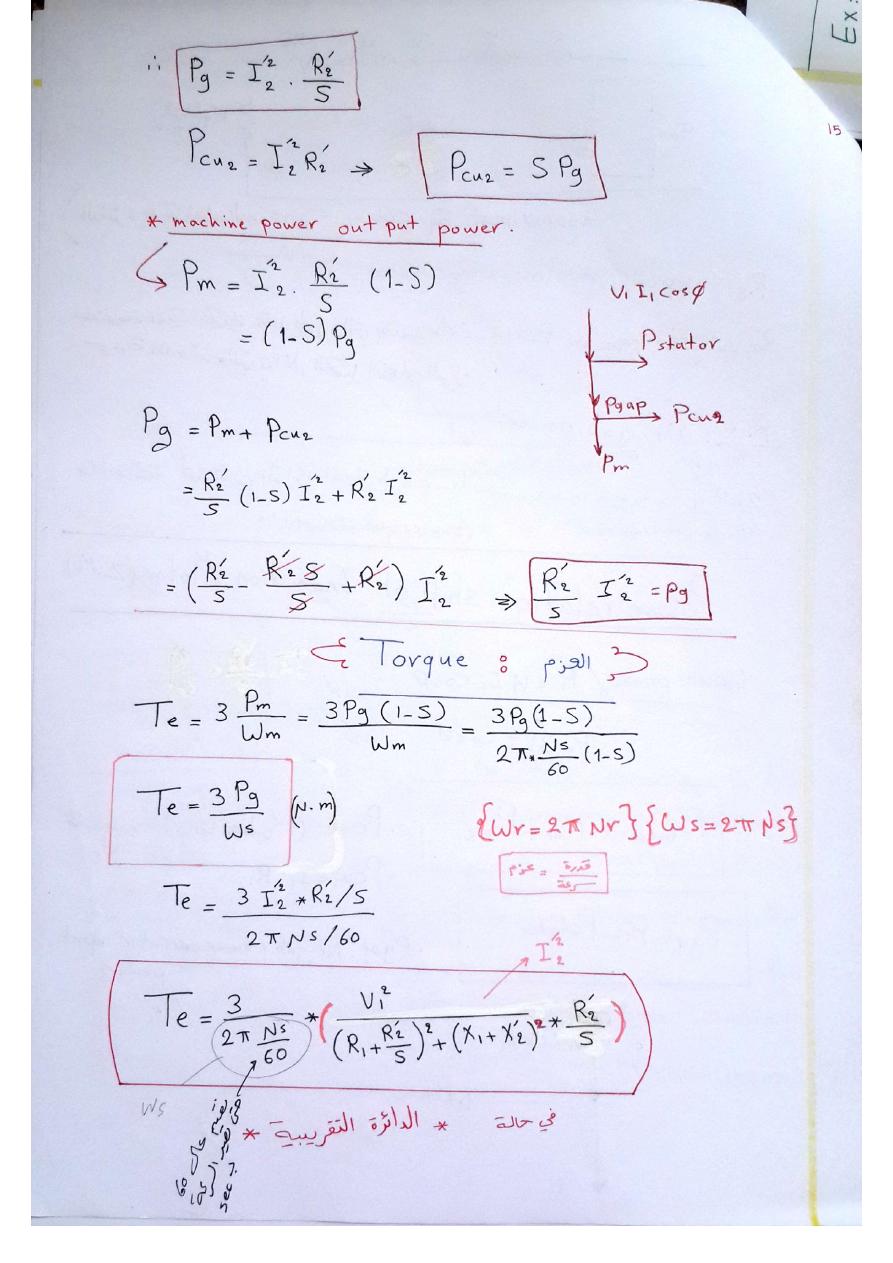 Ex:
15
∴ Pg = I₂'² . R₂'/S
Pcu₂ = I₂'² R₂' → Pcu₂ = S Pg
* machine power out put power.
Pm = I₂'² . R₂'/S (1-S)
= (1-S) Pg
V₁ I₁ cosφ
Pstator
Pgap Pcu₂
Pm
Pg = Pm + Pcu₂
= R₂'/S (1-S) I₂'² + R₂' I₂'²
= (R₂'/S - R₂' S/S + R₂') I₂'² ⇒ R₂'/S I₂'² = Pg
Torque : العزم
Te = 3 Pm/Wm = 3 Pg (1-S)/Wm = 3 Pg (1-S)/(2π * Ns/60 (1-S))
Te = 3 Pg/Ws (N.m)
{Wr = 2π Nr} {Ws = 2π Ns}
قدرة/سرعة = عزم
Te = (3 I₂'² * R₂'/S)/(2π Ns/60)
I₂'²
Te = 3/(2π Ns/60) * (V₁²/((R₁ + R₂'/S)² + (X₁ + X₂')²) * R₂'/S)
Ws
في حالة * الدائرة التقريبية *